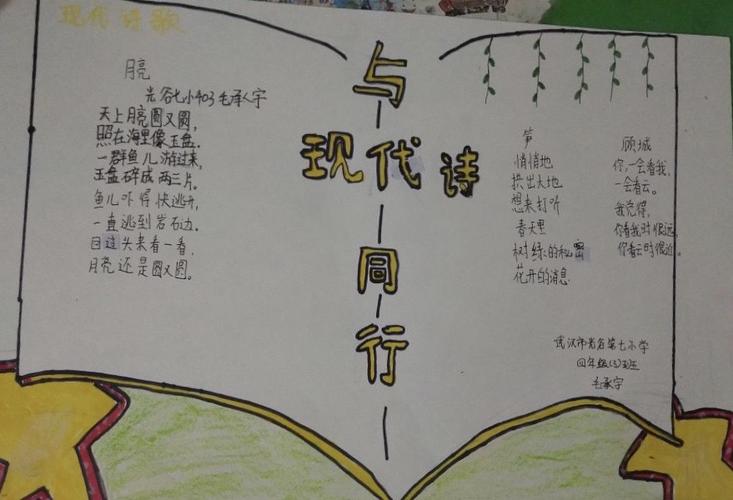 现代诗歌
月亮
光谷七小403毛承宇
天上月亮圆又圆,
照在海里像玉盘.
一群鱼儿游过来,
玉盘碎成两三片.
鱼儿吓得快逃开,
一直逃到岩石边.
回过头来看一看,
月亮还是圆又圆。
与
现代诗
同
行
笋
悄悄地
拱出大地
想来打听
春天里
树绿的秘密
花开的消息
顾城
你,一会看我,
一会看云。
我觉得,
你看我时很远
你看云时很近。
武汉市光谷第七小学
四年级(3)班
毛承宇